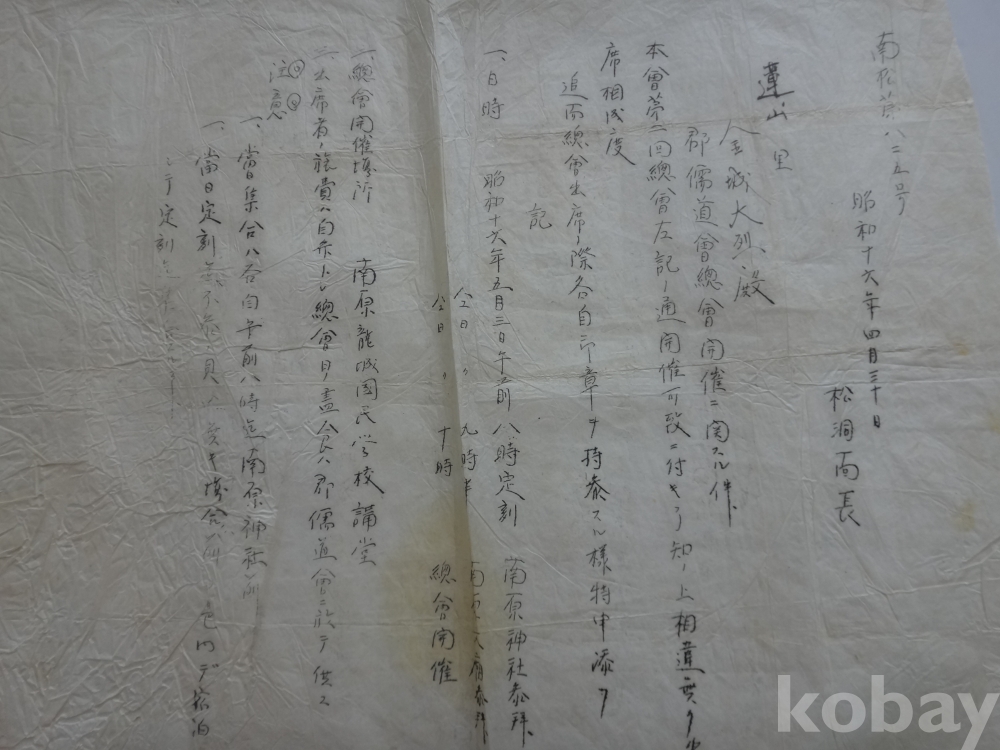 第八二五号
昭和十六年四月三十日
松洞面長
蓮山里
金城大烈殿
郡儒道會總會開催ニ関スル件
本會第二回總會左記ノ通開催可致ニ付キ知ノ上相違無ク
席相成度
追而總會出席ノ際各自印章ヲ持参スル様特申添フ
記
一、日時 昭和十六年五月三日午前八時定刻 南原神社参拝
仝日 〃 九時半 参拝
仝日 〃 十時 總會開催
一、總會開催場所 南原龍城國民学校講堂
二、出席者ノ旅費ハ自弁トシ總會日ノ晝食ハ郡儒道會ニ於テ供ス
注意
一、當集合ハ各自午前八時迄南原神社前
一、當日定刻 場合 デ宿泊
定刻
kobay